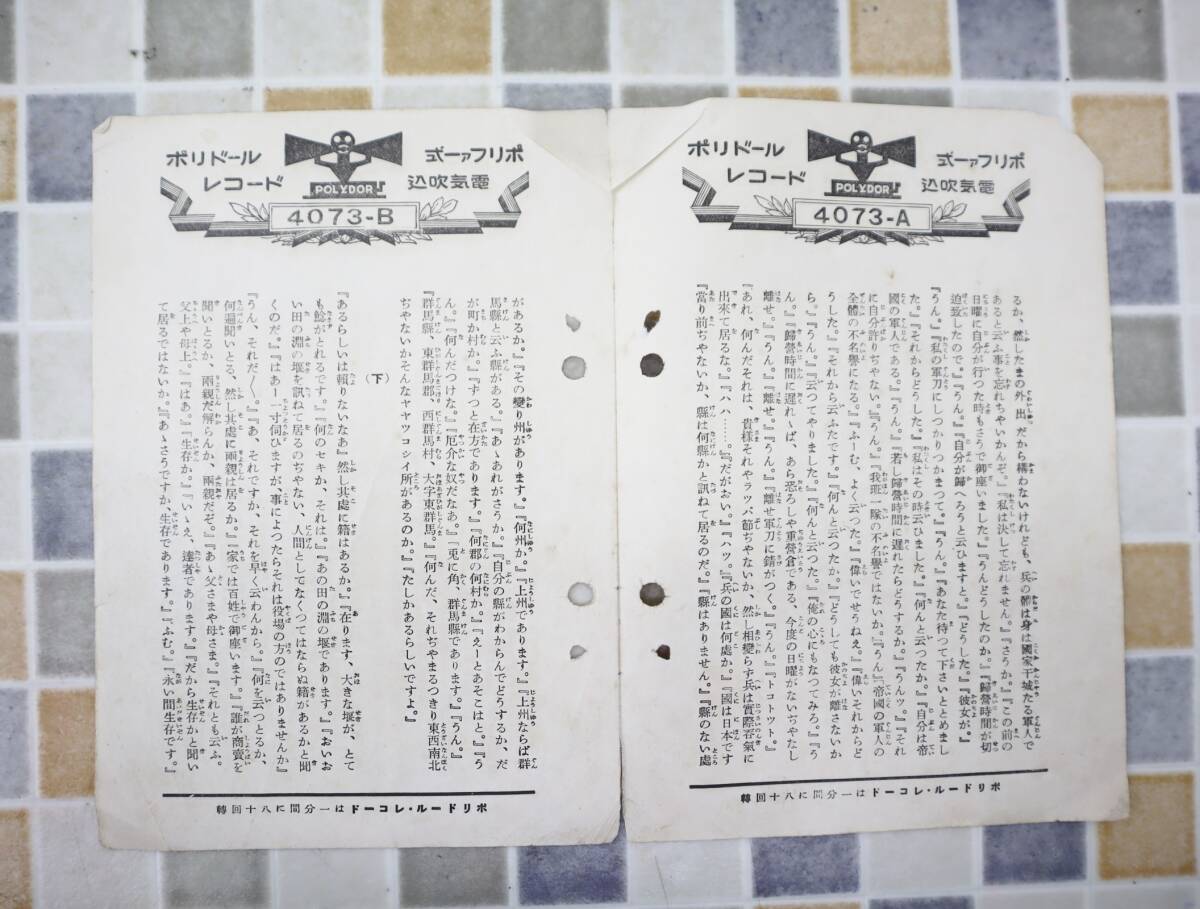 ポリドール
レコード
ポリファー式
電気吹込
POLYDOR
4073-A
るか、然したまの外出だから構わないけれども、兵の體は身は國家干城たる軍人で
あると云ふ事を忘れちやいかんぞ。』『私は決して忘れません。』『さうか。』『この前の
日曜に自分が行つた時もさうで御座いました。』『うんどうしたのか。』『歸營時間が切
迫致したので。』『うん。』『自分が歸へろうと云ひますと。』『どうした。』『彼女が。』
『うん。』『私の軍刀にしつかりつかまつて。』『うん。』『あなた待つて下さいととめまし
た。』『それからどうした。』『私はその時云ひました。』『何んと云つたか。』『自分は帝
國の軍人である。』『うん。』『若し歸營時間に遲れたらどうするか。』『うんッ。』『それ
に自分許りぢやない。』『うん。』『我班一隊の不名譽ではないか。』『うん』『帝國の軍人の
全體の不名譽になる。』『ふーむ、よく云つた。』『偉いでせうねえ。』『偉いそれからど
うした。』『それから云ふたです。』『何んと云つたか。』『どうしても彼女が離さないか
ら。』『うん。』『云つてやりました。』『何んと云つた。』『俺の心にもなつてみろ。』『う
ん。』『歸營時間に遲れゝば、あら恐ろしや重營倉である、今度の日曜がないぢやなし
離せ。』『うん。』『離せ。』『うん。』『離せ軍刀に錆がつく。』『うん。』『トコトット。』
『あれ、何んだそれは、貴様それやラッパ節ぢやないか、然し相變らず兵は實際呑氣に
出來て居るな。』『ハハ……。』『だがおい。』『ハッ。』『兵の國は何處か。』『國は日本です』
『當り前ぢやないか、縣は何縣かと訊ねて居るのだ。』『縣はありません。』『縣のない處
ポリドール・レコードは一分間に八十回轉
ポリドール
レコード
ポリファー式
電気吹込
POLYDOR
4073-B
があるか。』『その變り州があります。』『何州か。』『上州であります。』『上州ならば群
馬縣と云ふ縣がある。』『あゝあれがさうか。』『自分の縣がわからんでどうするか、だ
が町か村か。』『ずつと在方であります。』『何郡の何村か。』『えーとあそこはと。』『う
ん。』『何んだつけな。』『厄介な奴だなあ。』『兎に角、群馬縣であります。』『うん。』
『群馬縣、東群馬郡、西群馬村、大字東群馬。』『何んだ、それぢやまるつきり東西南北
ぢやないかそんなヤヤッコシイ所があるのか。』『たしかあるらしいですよ。』
(下)
『あるらしいは頼りないなあ』然し其處に籍はあるか。』『在ります、大きな堰が、とて
も鯰がとれるです。』『何のセキか、それは。』『あの田の淵の堰であります。』『おいお
い田の淵の堰を訊ねて居るのぢやない、人間としてなくつてはならぬ籍があるかと聞
くのだ。』『はあー一寸伺ひますが、事によつたらそれは役場の方のではありませんか』
『うん、それだ〱。』『あ、それですか、それを早く云わんから。』『何を云つとるか、
何遍聞いとる、然し其處に兩親は居るか。』『家では百姓で御座います。』『誰が商賣を
聞いとるか、兩親だ解らんか、兩親だぞ。』『あゝ父さまや母さま。』『それとも云ふ。
父上や母上。』『はあ。』『生存か。』『いゝえ、達者であります。』『だから生存かと聞い
て居るではないか。』『あゝさうですか、生存であります。』『ふむ。』『永い間生存です。』
ポリドール・レコードは一分間に八十回轉